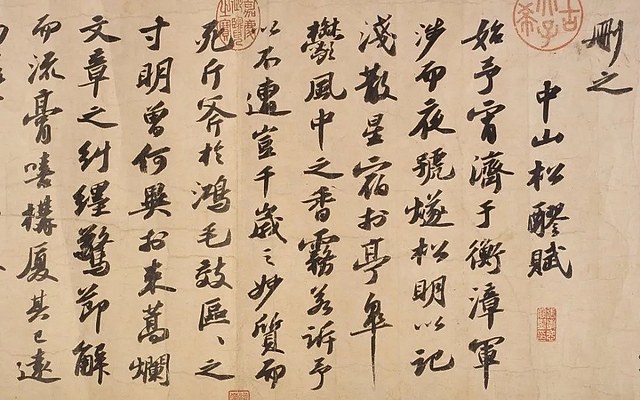 刪之
中山松醪賦
始予宵濟于衡漳軍
涉而夜號燧松明以記
淺散星宿於亭皋
鬱風中之香霧若訴予
以不遭豈千歲之妙質而
死斤斧於鴻毛效區々之
寸明曾何異於束蒿爛
文章之糾纏驚節解
而流膏嘻構厦其已遠
古希天子
嘉慶御覽之寶